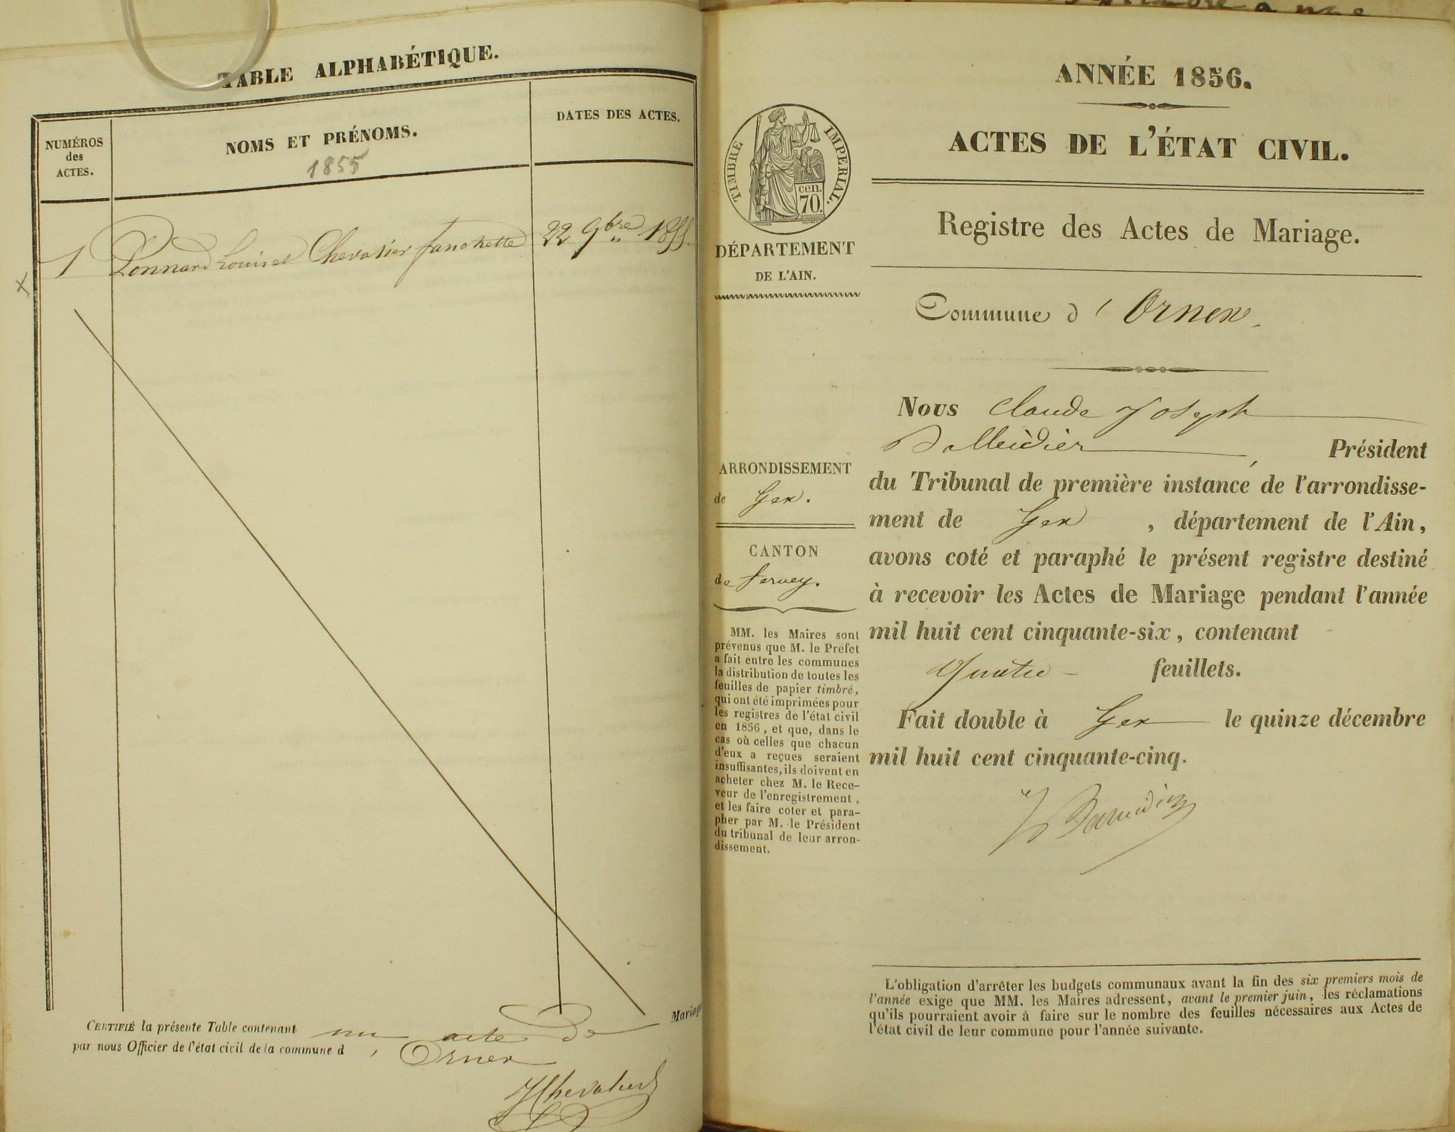 TABLE ALPHABÉTIQUE.
NUMÉROS
des
ACTES.
NOMS ET PRÉNOMS.
1855
DATES DES ACTES.
1 Ponnard Louis et Chevalier fanchette 22 9bre 1855
CERTIFIÉ la présente Table contenant un acte de Mariage
par nous Officier de l'état civil de la commune d' Ornex
JChevalier
ANNÉE 1856.
ACTES DE L'ÉTAT CIVIL.
TIMBRE IMPÉRIAL.
cen.
70.
DÉPARTEMENT
DE L'AIN.
Registre des Actes de Mariage.
Commune d' Ornex.
ARRONDISSEMENT
de Gex.
CANTON
de ferney.
MM. les Maires sont
prévenus que M. le Préfet
a fait entre les communes
la distribution de toutes les
feuilles de papier timbré,
qui ont été imprimées pour
les registres de l'état civil
en 1856, et que, dans le
cas où celles que chacun
d'eux a reçues seraient
insuffisantes, ils doivent en
acheter chez M. le Rece-
veur de l'enregistrement,
et les faire coter et para-
pher par M. le Président
du tribunal de leur arron-
dissement.
Nous Claude Joseph
, Président
du Tribunal de première instance de l'arrondisse-
ment de Gex , département de l'Ain,
avons coté et paraphé le présent registre destiné
à recevoir les Actes de Mariage pendant l'année
mil huit cent cinquante-six, contenant
Quatre feuillets.
Fait double à Gex le quinze décembre
mil huit cent cinquante-cinq.
L'obligation d'arrêter les budgets communaux avant la fin des six premiers mois de
l'année exige que MM. les Maires adressent, avant le premier juin, les réclamations
qu'ils pourraient avoir à faire sur le nombre des feuilles nécessaires aux Actes de
l'état civil de leur commune pour l'année suivante.